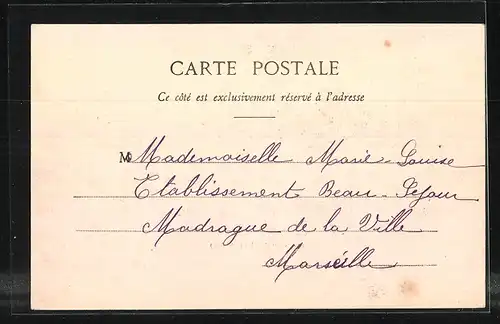 CARTE POSTALE
Ce côté est exclusivement réservé à l'adresse
M Mademoiselle Marie-Louise
Etablissement Beau-Séjour
Madrague de la Ville
Marseille